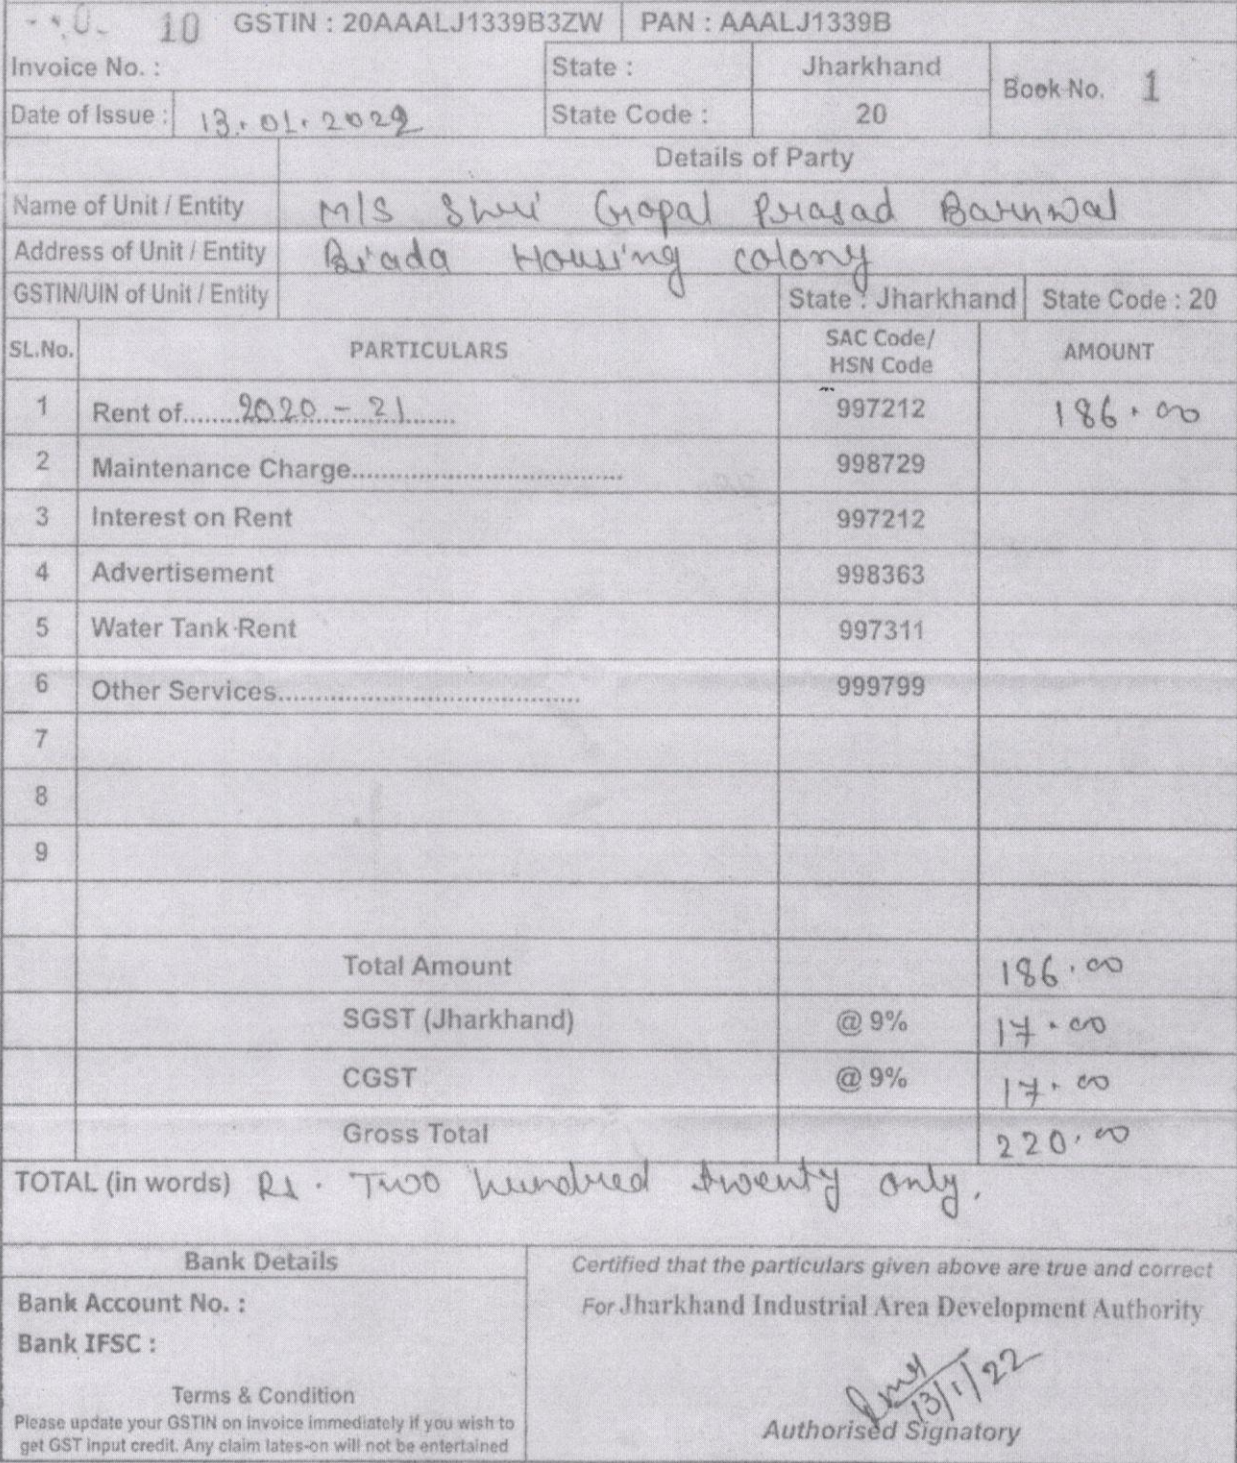 10 GSTIN : 20AAALJ1339B3ZW PAN : AAALJ1339B
Invoice No. : State : Jharkhand Book No. 1
Date of Issue : 13.01.2022 State Code : 20
Details of Party
Name of Unit / Entity M/S Shri Gopal Prasad Barnwal
Address of Unit / Entity Biada Housing colony
GSTIN/UIN of Unit / Entity State : Jharkhand State Code : 20
SL.No. PARTICULARS SAC Code/ HSN Code AMOUNT
1 Rent of........2020-21....... 997212 186.00
2 Maintenance Charge.................................. 998729
3 Interest on Rent 997212
4 Advertisement 998363
5 Water Tank Rent 997311
6 Other Services...................................... 999799
7
8
9
Total Amount 186.00
SGST (Jharkhand) @ 9% 17.00
CGST @ 9% 17.00
Gross Total 220.00
TOTAL (in words) Rs. Two hundred twenty only.
Bank Details
Bank Account No. :
Bank IFSC :
Terms & Condition
Please update your GSTIN on Invoice immediately if you wish to
get GST input credit. Any claim lates-on will not be entertained
Certified that the particulars given above are true and correct
For Jharkhand Industrial Area Development Authority
13/1/22
Authorised Signatory